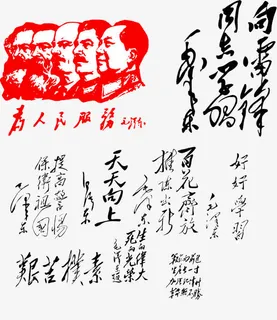 向雷锋
同志学习
毛泽东
为人民服務
毛泽东
提高警惕
保衛祖國
毛泽东
天天向上
毛泽东
百花齊放
推陈出新
毛泽东
好好學習
毛泽东
艱苦樸素
生的伟大
死的光荣
毛泽东题